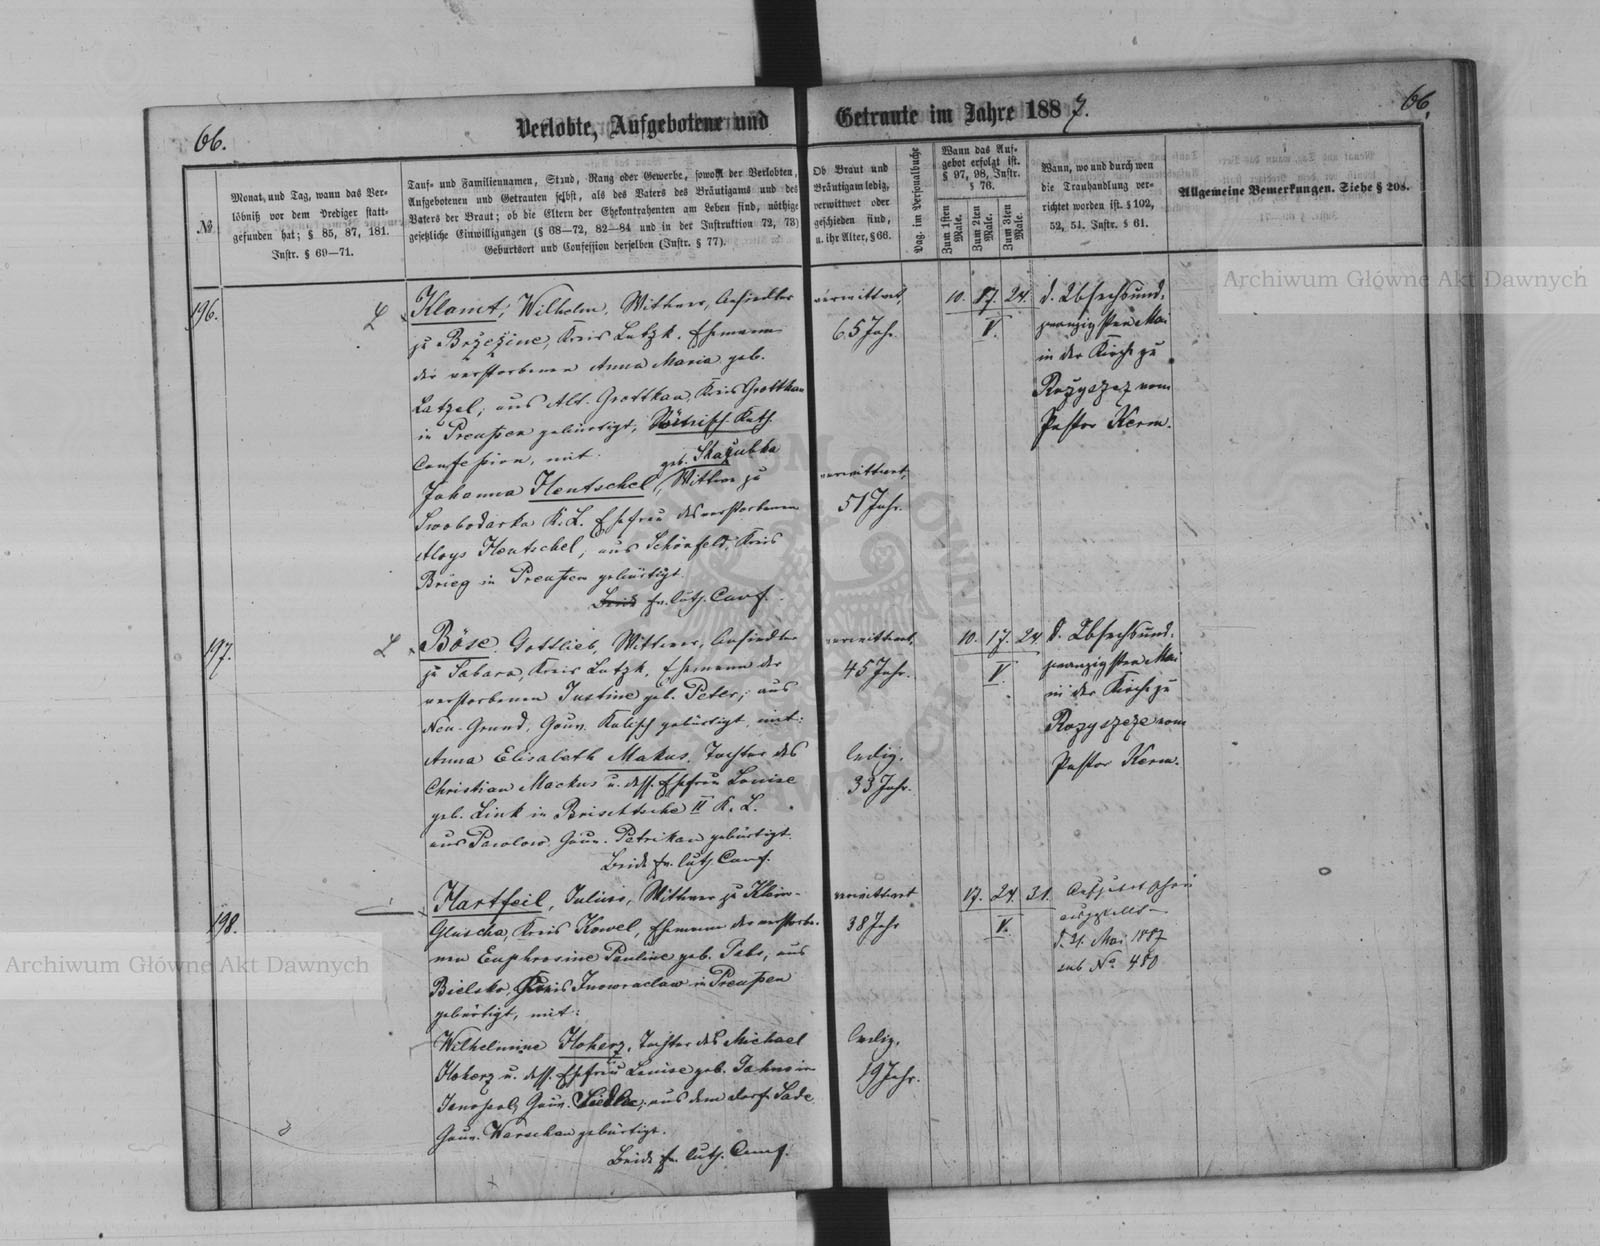 66.
Verlobte, Aufgebotene und Getraute im Jahre 1887.
66.
№
Monat, und Tag, wann das Ver-
löbniß vor dem Prediger statt-
gefunden hat; § 85, 87, 181.
Instr. § 69—71.
Tauf- und Familiennamen, Stand, Rang oder Gewerbe, sowohl der Verlobten,
Aufgebotenen und Getrauten selbst, als des Vaters des Bräutigams und des
Vaters der Braut; ob die Eltern der Ehekontrahenten am Leben sind, nöthige
gesetzliche Einwilligungen (§ 68—72, 82—84 und in der Instruktion 72, 73)
Geburtsort und Confession derselben (Instr. § 77).
Ob Braut und
Bräutigam ledig,
verwittwet oder
geschieden sind,
u. ihr Alter, § 66.
Pag. im Personalbuche
Wann das Auf-
gebot erfolgt ist.
§ 97, 98, Instr.
§ 76.
Zum 1sten Male.
Zum 2ten Male.
Zum 3ten Male.
Wann, wo und durch wen
die Trauhandlung ver-
richtet worden ist. § 102,
52, 54. Instr. § 61.
Allgemeine Bemerkungen. Siehe § 208.
196.
L
Klamt, Wilhelm, Wittwer, Ansiedler
zu Brzezine, Kreis Lutzk, Ehemann
der verstorbenen Anna Maria geb.
Latzel; aus Alt-Grottkau, Kreis Grottkau
in Preußen gebürtigt, Römisch-Kath.
Confession, mit
geb. Skazubka
Johanna Hentschel, Wittwe zu
Swobodarka K. L. Ehefrau des verstorbenen
Aloys Hentschel, aus Schönfeld, Kreis
Brieg in Preußen gebürtigt.
Beide ev. luth. Conf.
verwittwet,
65 Jahr.
verwittwet,
51 Jahr.
10. 17. 24.
V.
d. Sechsund-
zwanzigsten Mai
in der Kirche zu
Rozyszcz vom
Pastor Kerm.
197.
L
Böse, Gottlieb, Wittwer, Ansiedler
zu Sabara, Kreis Lutzk, Ehemann der
verstorbenen Justine geb. Peter; aus
Neu-Grund, Gouv. Kalisch gebürtigt, mit:
Anna Elisabeth Makus, Tochter des
Christian Mackus u. dess. Ehefrau Louise
geb. Link in Brischtsche II K. L.
aus Pawlow, Gouv. Petrikau gebürtigt.
Beide ev. luth. Conf.
verwittwet,
45 Jahr.
ledig,
33 Jahr.
10. 17. 24
V.
d. Sechsund-
zwanzigsten Mai
in der Kirche zu
Rozyszcze vom
Pastor Kerm.
198.
Hartfeil, Julius, Wittwer zu Klein-
Gluscha, Kreis Kowel, Ehemann der verstorbe-
nen Euphrosine Pauline geb. Pabs, aus
Bielsko, Kreis Inowraclaw in Preußen
gebürtigt, mit:
Wilhelmine Koherz, Tochter des Michael
Koherz u. dess. Ehefrau Louise geb. Jahns in
Janopol, Gouv. Siedlce, aus dem Dorf Sade
Gouv. Warschau gebürtigt.
Beide ev. luth. Conf.
verwittwet
38 Jahr
ledig,
19 Jahr.
17. 24. 31.
V.
ausgestellt
d. 31. Mai 1887
sub № 480
Archiwum Główne Akt Dawnych
Archiwum Główne Akt Dawnych